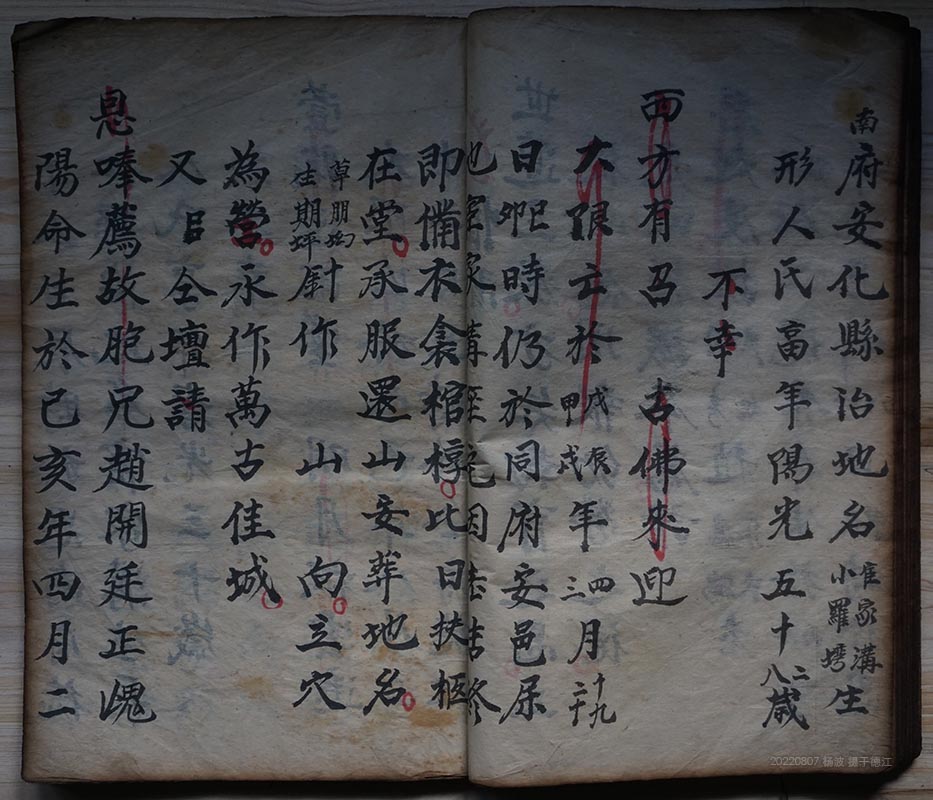 南府安化縣治地名崔家溝小羅塆生
形人氏畐年陽光五十二八歲
不幸
西方有召 古佛來迎
大限亡於戊辰甲戌年四三月十九二十
日卯巳時仍於同府安邑屎
即備衣衾棺槨此日扶柩
在堂承服還山安葬地名
草朋坳生期坪針作 山 向立穴
為營永作萬古佳城
又 㠯仝壇請
息嗪薦故胞兄趙開廷正魂
陽命生於己亥年四月二
20220807 杨波 摄于德江